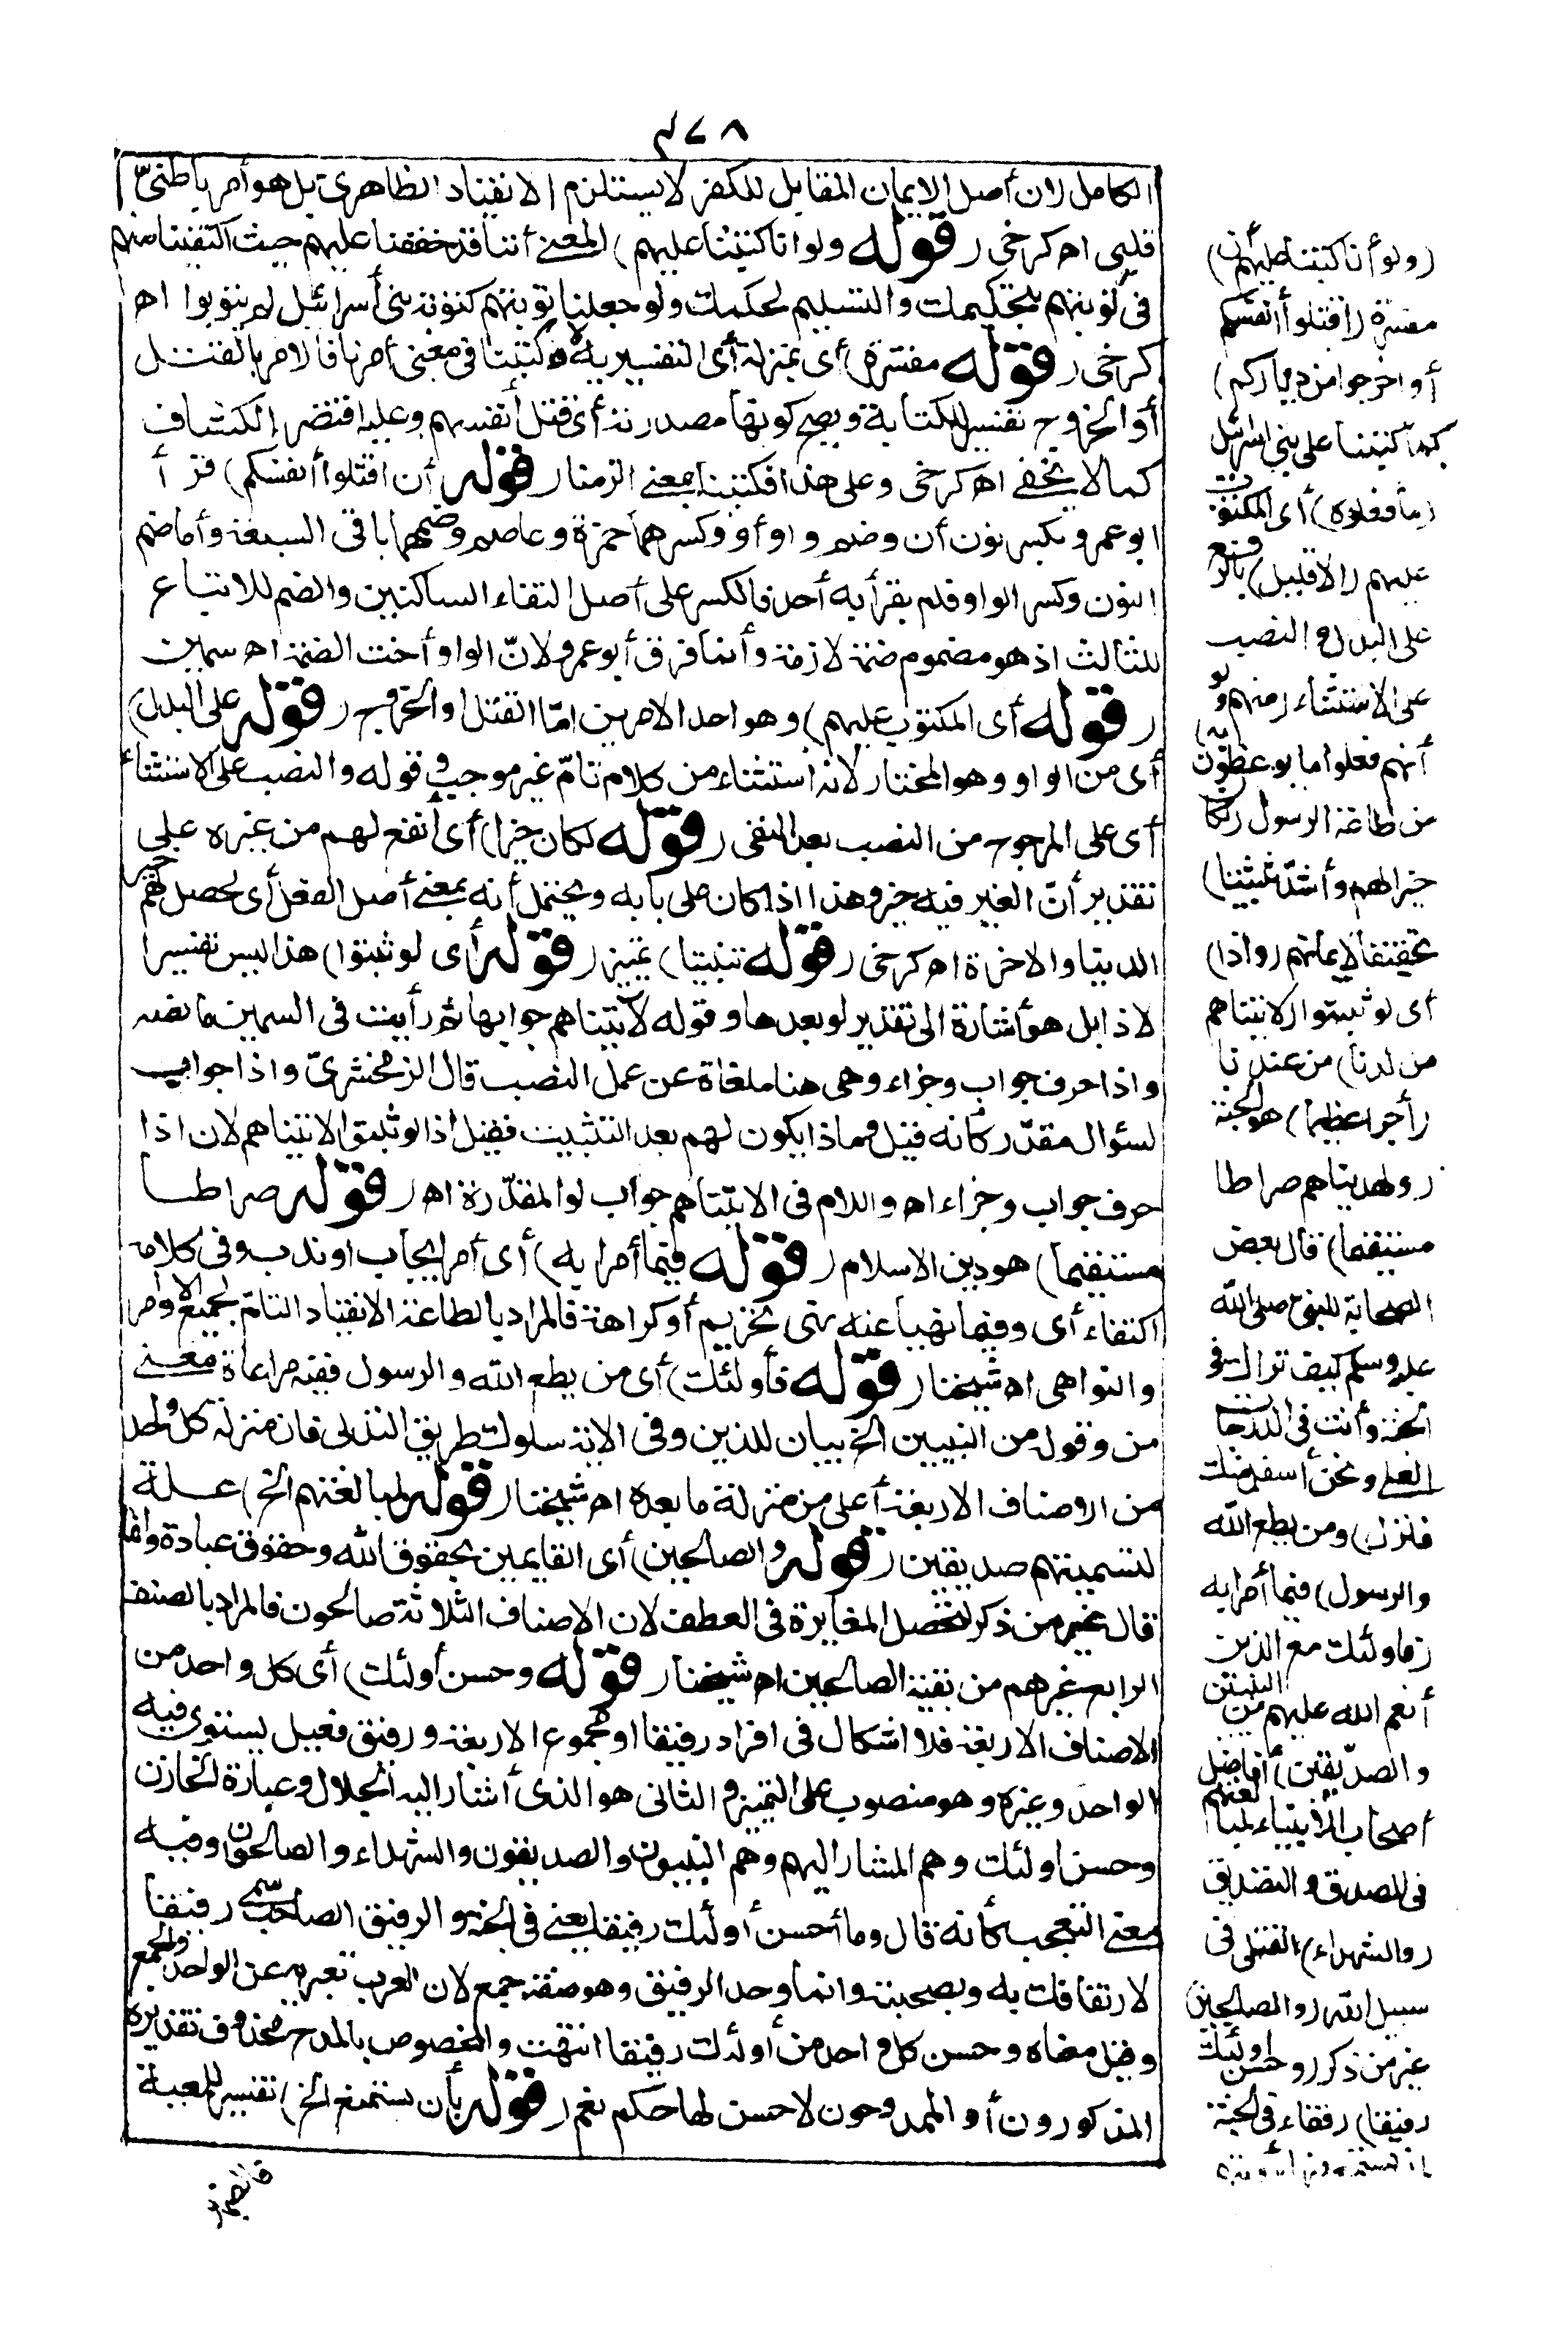 ٣٧٨
الكامل لان أصل الايمان المقابل للكفر لا يستلزم الانقياد الظاهرى بل هو أمر باطنىّ
قلبى اه كرخى (قوله ولو انا كتبنا عليهم) المعنى أننا قد خففنا عليهم حيث اكتفينا منهم
فى توبتهم بتحكيمك والتسليم لحكمك ولو جعلنا توبتهم كتوبة بنى أسرائيل لم يتوبوا اه
كرخى (قوله مفسرة) أى بمنزلة أى التفسيرية لان كتبنا فى معنى أمرنا فالامر بالقتل
أو الخروج تفسير للكتابة ويصح كونها مصدرية أى قتل أنفسهم وعليه اقتصر الكشاف
كما لا يخفى اه كرخى وعلى هذا فكتبنا بمعنى الزمنا (قوله أن اقتلوا أنفسكم) قرأ
ابو عمرو بكسر نون أن وضم واو أو وكسرهما حمزة وعاصم وضمهما باقى السبعة وأما ضم
النون وكسر الواو فلم يقرأ به أحد فالكسر على أصل التقاء الساكنين والضم للاتباع
للثالث اذ هو مضموم ضمة لازمة وأنما فرق أبو عمرو لانّ الواو أخت الضمة اه سمين
(قوله أى المكتوب عليهم) وهو احد الامرين امّا القتل او الخروج (قوله على البدل)
أى من الواو وهو المختار لانه استثناء من كلام تامّ غير موجب وقوله والنصب على الاستثناء
أى على المرجوح من النصب بعد النفى (قوله لكان خيرا) أى أنفع لهم من غيره على
تقدير أنّ الغير فيه خير وهذا اذا كان على بابه ويحتمل أنه بمعنى أصل الفعل أى لحصل لهم خير
الدنيا والاخرة اه كرخى (قوله تثبيتا) تمييز (قوله أى لو ثبتوا) هذا ليس تفسيرا
لاذا بل هو أشارة الى تقدير لو بعدها وقوله لآتيناهم جوابها ثم رأيت فى السمين ما نصه
واذا حرف جواب وجزاء وهى هنا ملغاة عن عمل النصب قال الزمخشرىّ واذا جواب
لسئوال مقدّر كأنه قيل وماذا يكون لهم بعد التثبيت فقيل اذا لو ثبتوا لاتيناهم لان اذا
حرف جواب وجزاء اه واللام فى لاتيناهم جواب لو المقدّرة اه (قوله صراطا
مستقيما) هو دين الاسلام (قوله فيما أمرا به) أى أمر ايجاب او ندب وفى كلامه
اكتفاء أى وفيما نهيا عنه نهى تحريم أو كراهة فالمراد بالطاعة الانقياد التامّ لجميع الاوامر
والنواهى اه شيخنا (قوله فأولئك) أى من يطع الله والرسول ففيه مراعاة معنى
من وقوله من النبيين الخ بيان للذين وفى الاية سلوك طريق التدلى فان منزلة كل واحد
من الاصناف الاربعة أعلى من منزلة ما بعده اه شيخنا (قوله لمبالغتهم الخ) علة
لتسميتهم صديقين (قوله والصالحين) أى القايمين بحقوق الله وحقوق عباده وانما
قال غير من ذكر لتحصل المغايرة فى العطف لان الاصناف الثلاثة صالحون فالمراد بالصنف
الرابع غيرهم من بقية الصالحين اه شيخنا (قوله وحسن أولئك) أى كل واحد من
الاصناف الاربعة فلا اشكال فى افراد رفيقا او مجموع الاربعة ورفيق فعيل يستوى فيه
الواحد وغيره وهو منصوب على التمييز والثانى هو الذى أشار اليه الجلال وعبارة الخازن
وحسن اولئك وهم المشار اليهم وهم النبيون والصديقون والشهداء والصالحون وفيه
معنى التعجب كأنه قال وما أحسن أولئك رفيقا يعنى فى الجنة والرفيق الصاحب سمى رفيقا
لارتفاقك به وبصحبته وانما وحد الرفيق وهو صفة جمع لان العرب تعبر به عن الواحد والجمع
وقيل معناه وحسن كل واحد من أولئك رفيقا انتهت والمخصوص بالمدح محذوف تقديره
المذكورون أو الممدوحون لا حسن لها حكم نعم (قوله بأن يستمتع الخ) تفسير للمعية
(ولو أنا كتبنا عليهم أن)
مفسرة (اقتلوا أنفسكم
أو اخرجوا من دياركم)
كما كتبنا على بنى اسرائيل
(ما فعلوه) أى المكتوب
عليهم (الا قليل) بالرفع
على البدل والنصب
على الاستثناء (منهم ولو
أنهم فعلوا ما يوعظون به)
من طاعة الرسول (لكان
خيرا لهم وأشدّ تثبيتا)
تحقيقا لايمانهم (واذا)
أى لو ثبتوا (لاتيناهم
من لدنا) من عندنا
(أجرا عظيما) هو الجنة
(ولهديناهم صراطا
مستقيما) قال بعض
الصحابة للنبى صلى الله
عليه وسلم كيف نراك فى
الجنة وأنت فى الدرجات
العلى ونحن أسفل منك
فنزل (ومن يطع الله
والرسول) فيما أمرا به
(فاولئك مع الذين
أنعم الله عليهم من النبيين
والصدّيقين) أفاضل
أصحاب الأنبياء لمبالغتهم
فى الصدق والتصديق
(والشهداء) القتلى فى
سبيل الله (والصالحين)
غير من ذكر (وحسن اولئك
رفيقا) رفقاء فى الجنة